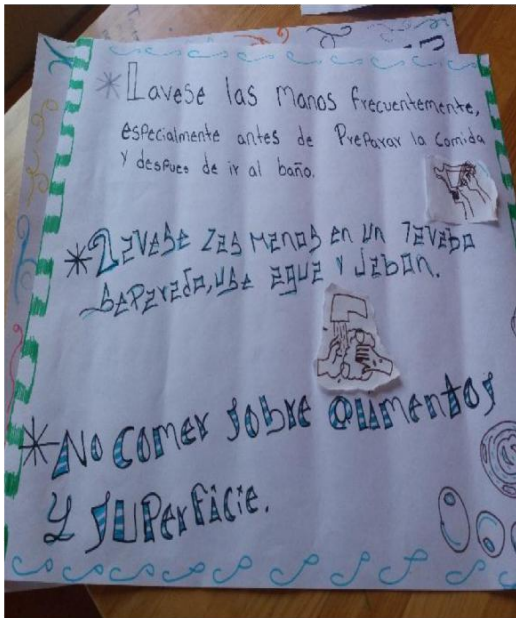 * Lavese las manos frecuentemente,
especialmente antes de Preparar la Comida
y despues de ir al baño.
* Lavese las manos en un lavabo
separado, use agua y jabon.
* No comer sobre alimentos
y superficie.